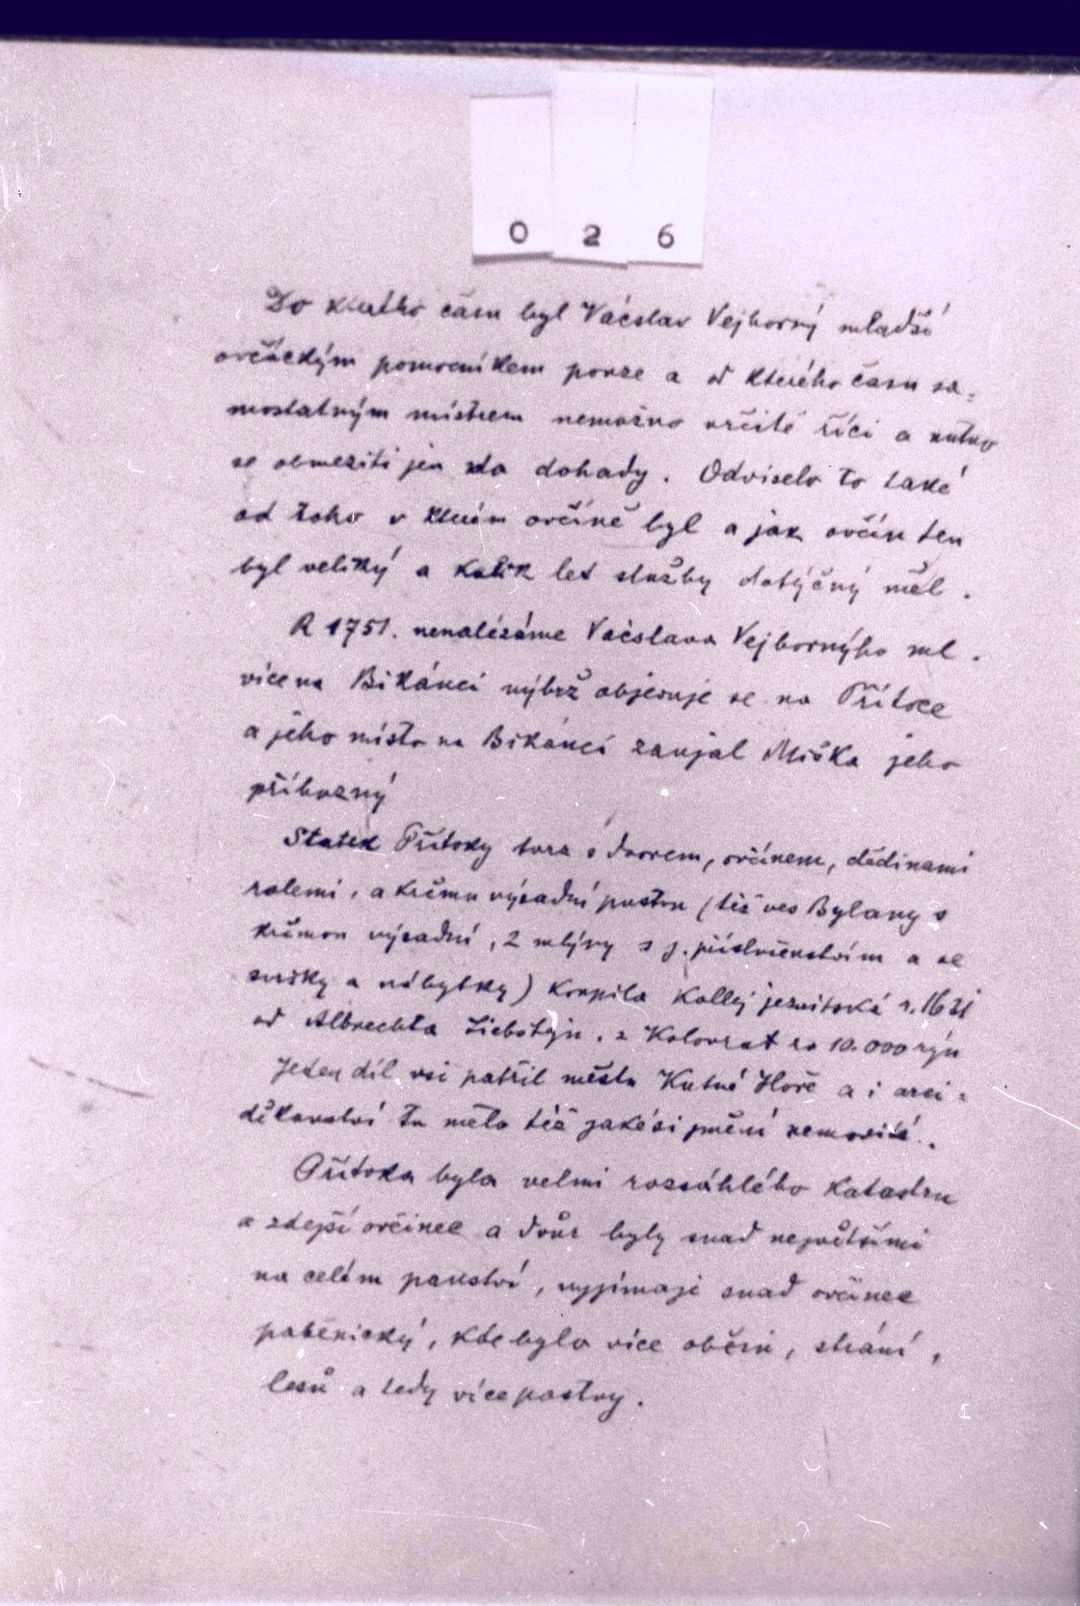 0 2 6
Do kterého času byl Václav Vejborný mladší
ovčáckým pomocníkem pouze a od kterého času sa-
mostatným mistrem nemožno určitě říci a nutno
se obmeziti jen na dohady. Odviselo to také
od toho v kterém ovčíně byl a jak ovčín ten
byl veliký a kolik let služby dotýčný měl.
R 1751. nenalézáme Václava Vejborného ml.
více na Bikánci nýbrž objevuje se na Přítoce
a jeho místo na Bikánci zaujal Miška jeho
příbuzný
Statek Přítoky tvrz s dvorem, ovčínem, dědinami
rolemi, a krčmu výsadní pustou (též ves Bylany s
krčmou výsadní, 2 mlýny s j. příslušenstvím a se
svršky a nábytky) koupila kollej jezuitská r.
od Albrechta Liebštejn. z Kolovrat za 10.000 rýn
Jeden díl vsi patřil městu Kutné Hoře a i arci-
děkanství tu mělo též jakési jmění nemovité.
Přítoka byla velmi rozsáhlého katastru
a zdejší ovčinec a dvůr byly snad největšími
na celém panství, vyjímaje snad ovčinec
paběnický, kde bylo více občin, strání,
lesů a tedy více pastvy.